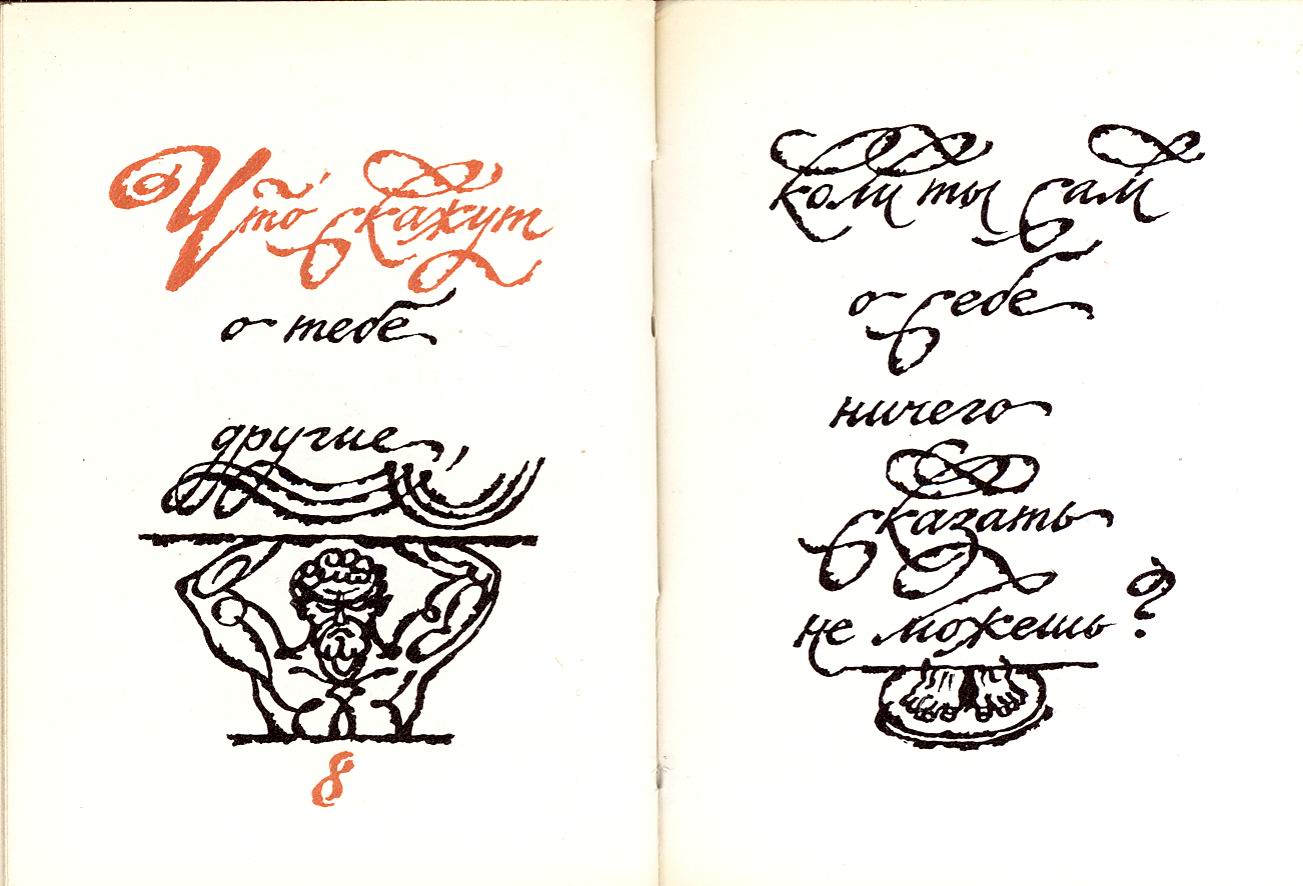 Что скажут
о тебе
другие,
8
коли ты сам
о себе
ничего
сказать
не можешь?